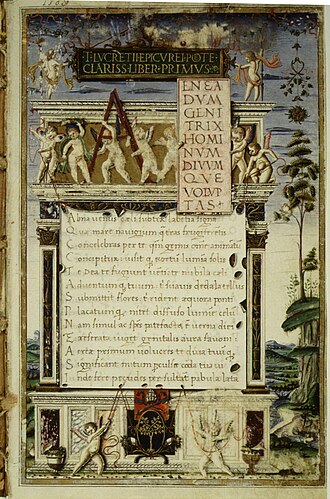 T·LVCRETII·EPICVREI·POTE
CLARISS·LIBER·PRIMVS·
A
ENEA
DVM
GENI
TRIX
HOMI
NVM
DIVVM
QVE
VOLVP
TAS
Alma venus cæli subter labētia signa
Quæ mare navigerum q̃ terras frugiferētis
Concelebras per te qm̃ genus omne animantū
Concipitur: visitq; exortū lumina solis
Te Dea te fugiunt vēti te nubila cæli
Adventumq; tuum: t suavis dedala tellus
submittit flores: t rident æquora ponti
Placatumq; nitet diffuso lumine celū
Nam simul ac spēs patefacta ē verna diei
Et reserata viget genitalis aura favoni
aeriæ primum volucres te diva tuumq;
significant initum perculsæ corda tua vi
Inde feræ pecudes persultāt pabula læta